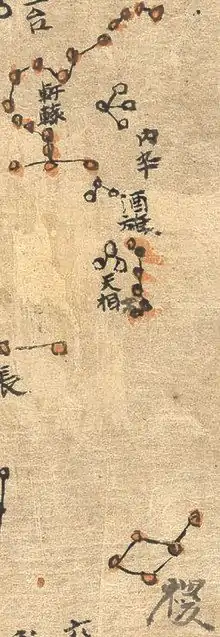 台
軒轅
内平
酒旗
天相
稷
六